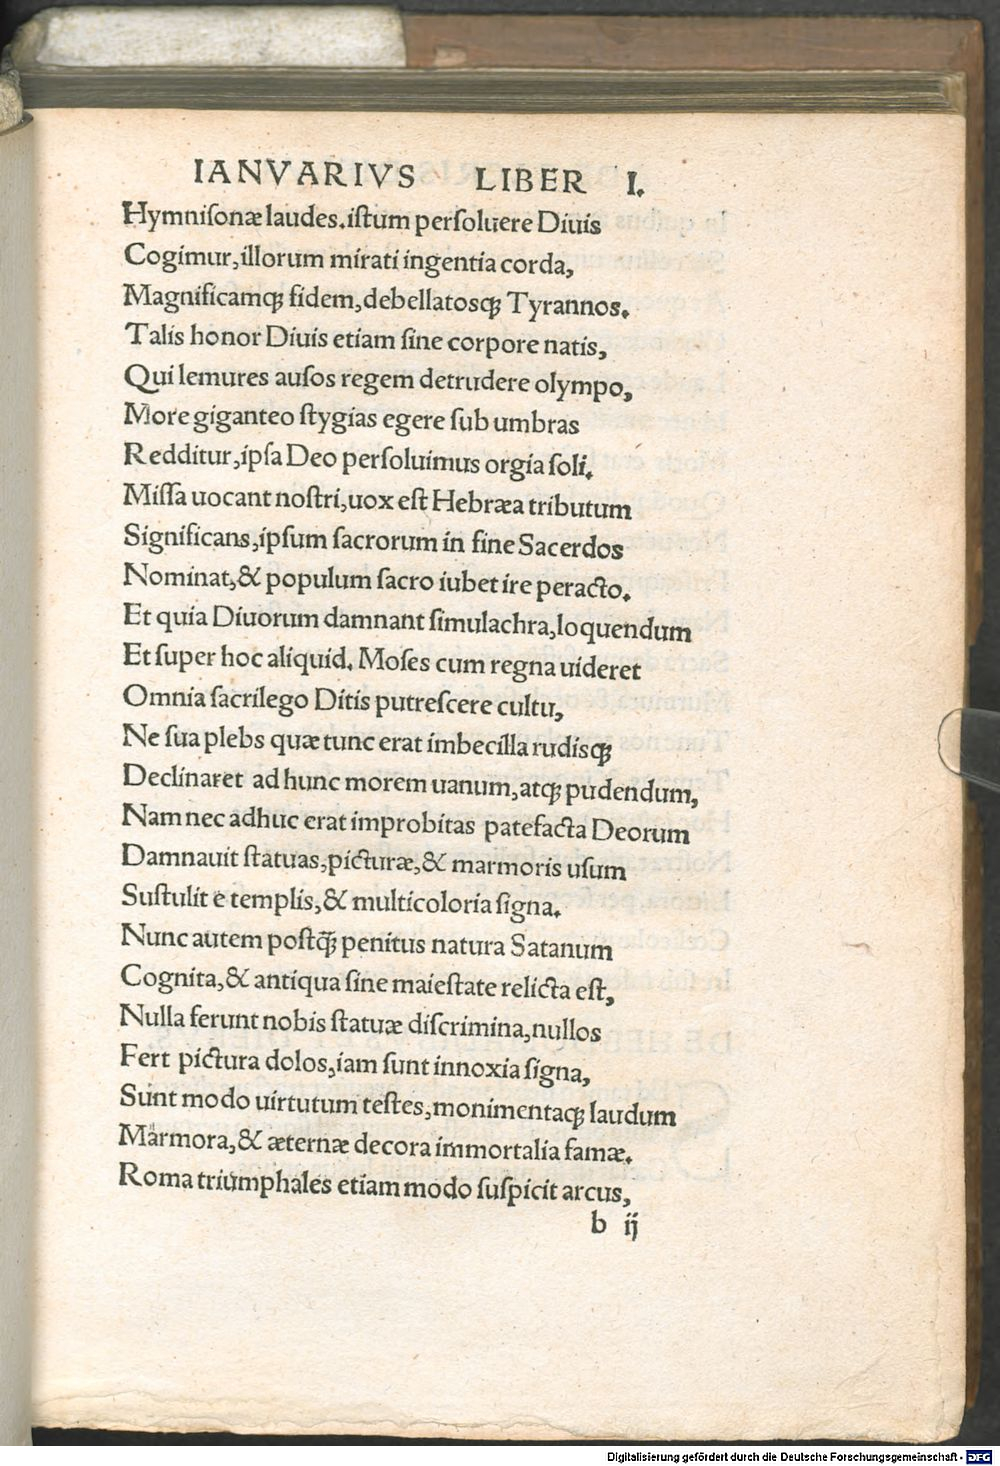 IANVARIVS LIBER I.
Hymnisonæ laudes. istum persoluere Diuis
Cogimur, illorum mirati ingentia corda,
Magnificamqꝫ fidem, debellatosqꝫ Tyrannos.
Talis honor Diuis etiam sine corpore natis,
Qui lemures ausos regem detrudere olympo,
More giganteo stygias egere sub umbras
Redditur, ipsa Deo persoluimus orgia soli.
Missa uocant nostri, uox est Hebræa tributum
Significans, ipsum sacrorum in fine Sacerdos
Nominat, & populum sacro iubet ire peracto.
Et quia Diuorum damnant simulachra, loquendum
Et super hoc aliquid. Moses cum regna uideret
Omnia sacrilego Ditis putrescere cultu,
Ne sua plebs quæ tunc erat imbecilla rudisqꝫ
Declinaret ad hunc morem uanum, atqꝫ pudendum,
Nam nec adhuc erat improbitas patefacta Deorum
Damnauit statuas, picturæ, & marmoris usum
Sustulit e templis, & multicoloria signa.
Nunc autem postq̃ꝫ penitus natura Satanum
Cognita, & antiqua sine maiestate relicta est,
Nulla ferunt nobis statuæ discrimina, nullos
Fert pictura dolos, iam sunt innoxia signa,
Sunt modo uirtutum testes, monimentaqꝫ laudum
Marmora, & æternæ decora immortalia famæ.
Roma triumphales etiam modo suspicit arcus,
b ij
Digitalisierung gefördert durch die Deutsche Forschungsgemeinschaft - DFG